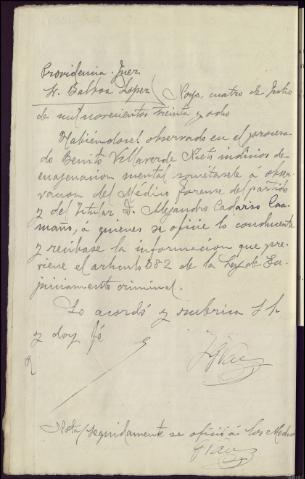 Providencia Juez
Sr. Balboa Lopez / Noya, cuatro de Julio
de mil novecientos treinta y ocho
Habiendose observado en el procesa-
do Benito Villaverde Nieto indicios de
enagenacion mental, sometasele á obser-
vacion del Médico forense del partido
y del titular D. Alejandro Cadarso Caa-
maño, á quienes se oficie lo conducente
y recibase la informacion que pre-
viene el articulo 382 de la Ley de En-
juiciamiento criminal.
Lo acordó y rubrica S. Sª
y doy fé
Nota / seguidamente se ofició á los Medicos